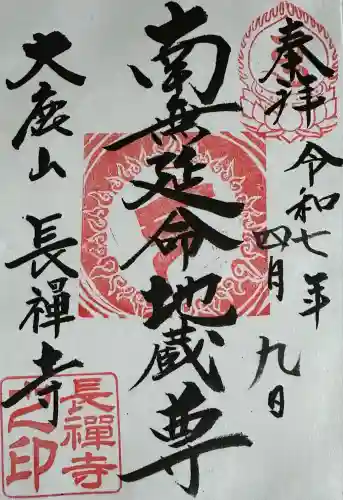 奉拝
令和七年
四月九日
南無延命地蔵尊
大鹿山
長禪寺
長禪寺之印